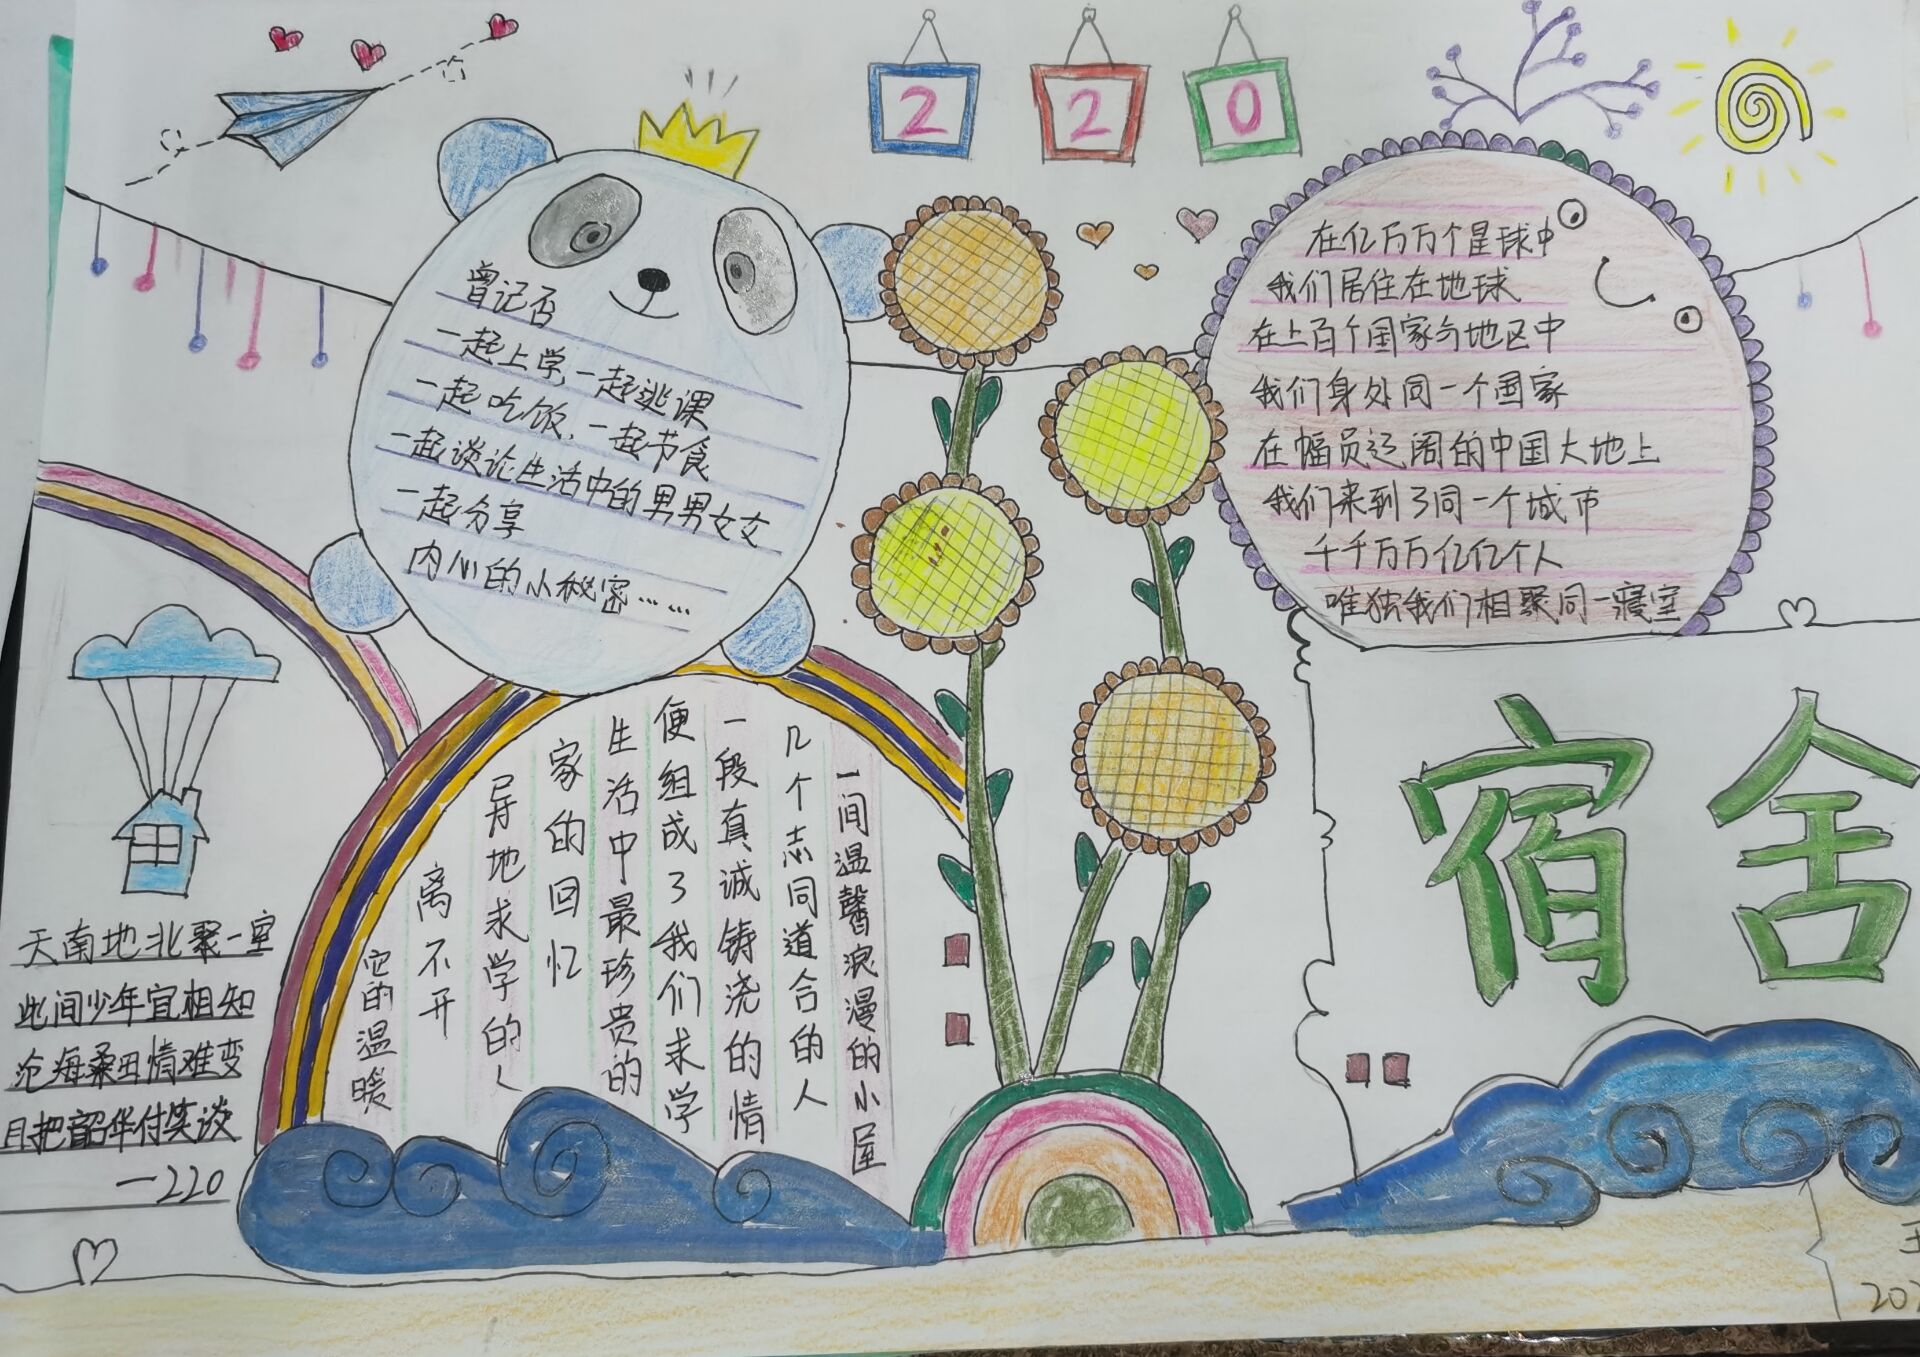 220
曾记否
一起上学,一起逃课
一起吃饭,一起节食
一起谈论生活中的男男女女
一起分享
内心的小秘密……
在亿万万个星球中
我们居住在地球
在上百个国家与地区中
我们身处同一个国家
在幅员辽阔的中国大地上
我们来到了同一个城市
千千万万亿亿个人
唯独我们相聚同一寝室
宿舍
一间温馨浪漫的小屋
几个志同道合的人
一段真诚铸浇的情
便组成了我们求学
生活中最珍贵的
家的回忆
异地求学的人
离不开
它的温暖
天南地北聚一室
此间少年宜相知
沧海桑田情难变
且把韶华付笑谈
—220
王
202